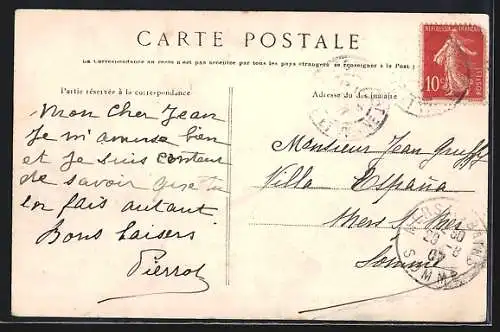 CARTE POSTALE
La Correspondance au recto n'est pas acceptée par tous les pays étrangers se renseigner à la Post
Partie réservée à la correspondance
Adresse du destinataire
REPUBLIQUE FRANÇAISE
10c
POSTES
Mon cher Jean
Je m'amuse bien
et je suis content
de savoir que tu
en fais autant
Bons baisers
Pierrot
Monsieur Jean
Villa España
Mers s/ Mer
Somme
29 - 8
07
SOMME